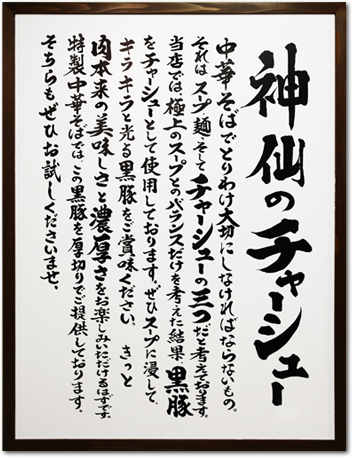 神仙のチャーシュー
中華そばでとりわけ大切にしなければならないもの。
それはスープ、麺、そしてチャーシューの三つだと考えております。
当店では、極上のスープとのバランスだけを考えた結果、黒豚
をチャーシューとして使用しております。ぜひスープに浸して、
キラキラと光る黒豚をご賞味ください。きっと
肉本来の美味しさと濃厚さをお楽しみいただけるはずです。
特製中華そばでは、この黒豚を厚切りでご提供しております。
そちらもぜひお試しくださいませ。